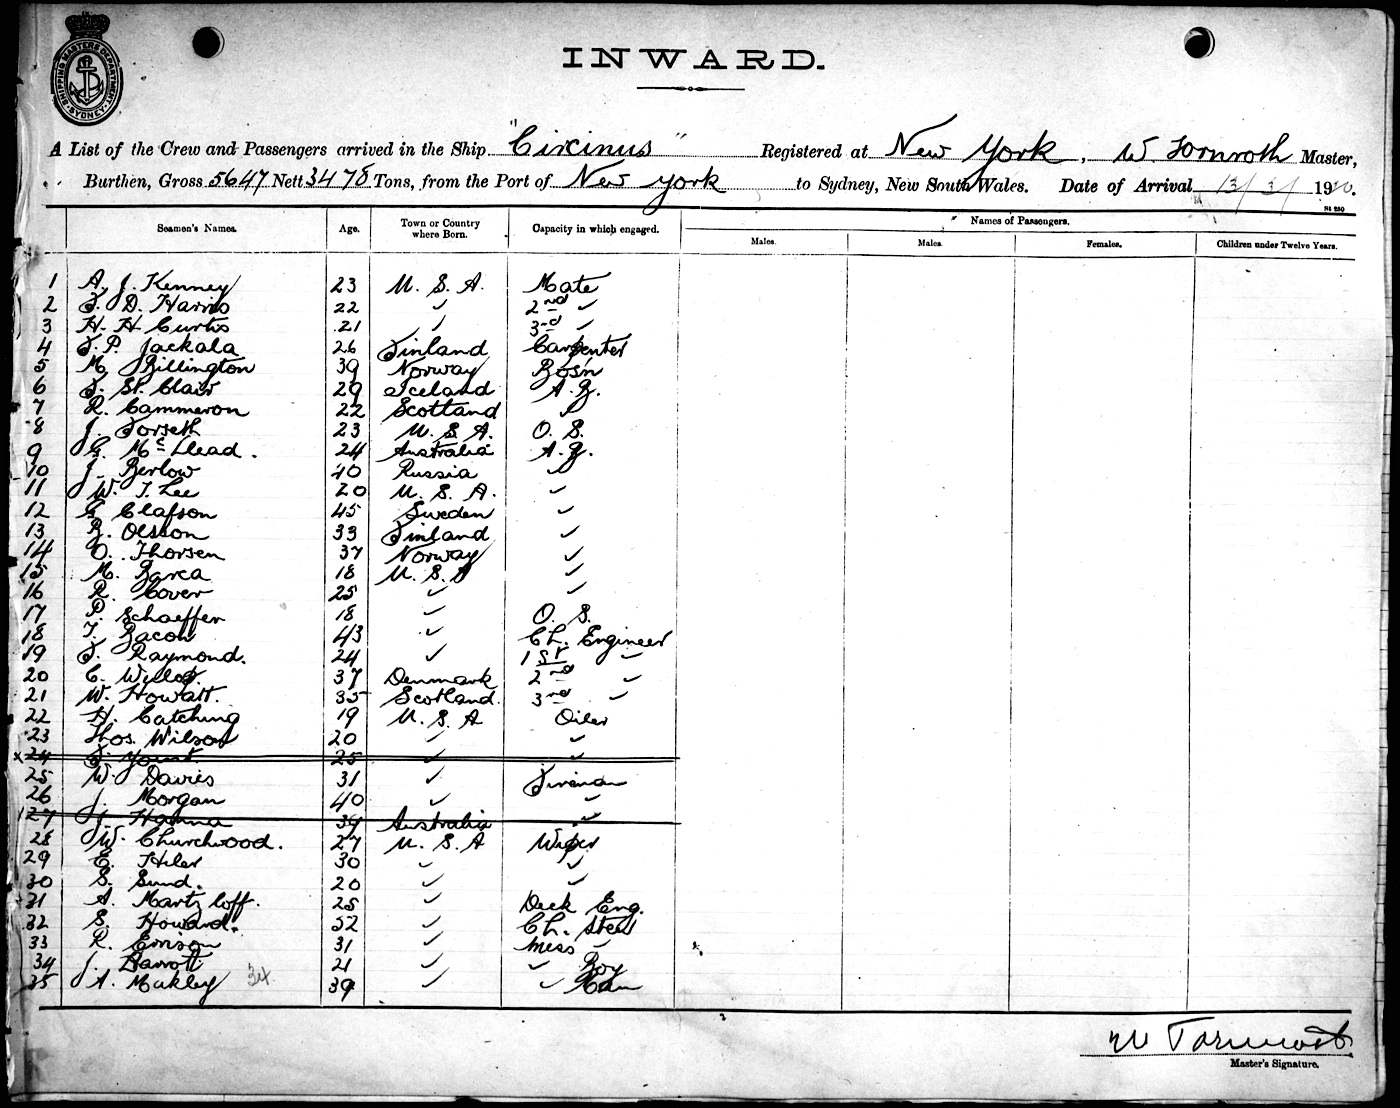 SHIPPING MASTERS DEPARTMENT SYDNEY
INWARD.
A List of the Crew and Passengers arrived in the Ship "Circinus" Registered at New York, W. Tornroth Master,
Burthen, Gross 5647 Nett 3478 Tons, from the Port of New York to Sydney, New South Wales. Date of Arrival 13/3/ 19
St 250
Seamen's Names. Age. Town or Country where Born. Capacity in which engaged. Names of Passengers.
Males. Males. Females. Children under Twelve Years.
1 A. J. Kenney 23 U. S. A. Mate
2 F. D. Harris 22 ✓ 2nd ✓
3 H. H. Curtis 21 ✓ 3rd ✓
4 F. P. Jackala 26 Finland Carpenter
5 M. Billington 39 Norway Bos'n
6 F. St. Clair 29 Iceland A. B.
7 R. Cammeron 22 Scotland ✓
8 J. Forseth 23 U. S. A. O. S.
9 G. Mc Llead. 24 Australia A. B.
10 J. Berlow 40 Russia ✓
11 W. T. Lee 20 U. S. A. ✓
12 G. Clafson 45 Sweden ✓
13 B. Olsson 33 Finland ✓
14 O. Thorsen 37 Norway ✓
15 M. Barca 18 U. S. A ✓
16 R. Cover 25 ✓ ✓
17 P. Schaeffer 18 ✓ O. S.
18 T. Bacon 43 ✓ Ch. Engineer
19 F. Raymond. 24 ✓ 1st ✓
20 C. 37 Denmark 2nd ✓
21 W. Howatt. 35 Scotland 3rd ✓
22 H. Catching 19 U. S. A Oiler
23 Thos. Wilson 20 ✓ ✓
x 24 F. Yount 25 ✓ ✓
25 W. Davies 31 ✓ Fireman
26 J. Morgan 40 ✓ ✓
27 J. Hanna 39 Australia ✓
28 W. Churchwood. 27 U. S. A Wiper
29 E. Hiler 30 ✓ ✓
30 S. Sund. 20 ✓ ✓
31 A. Martzloff. 25 ✓ Deck Eng.
32 S. Howard. 52 ✓ Ch. Stew
33 R. Errison 31 ✓ Mess ✓
34 J. Barrott 21 ✓ ✓ Boy
35 A. Makley 34 39 ✓ ✓ Man
W Tornroth
Master's Signature.